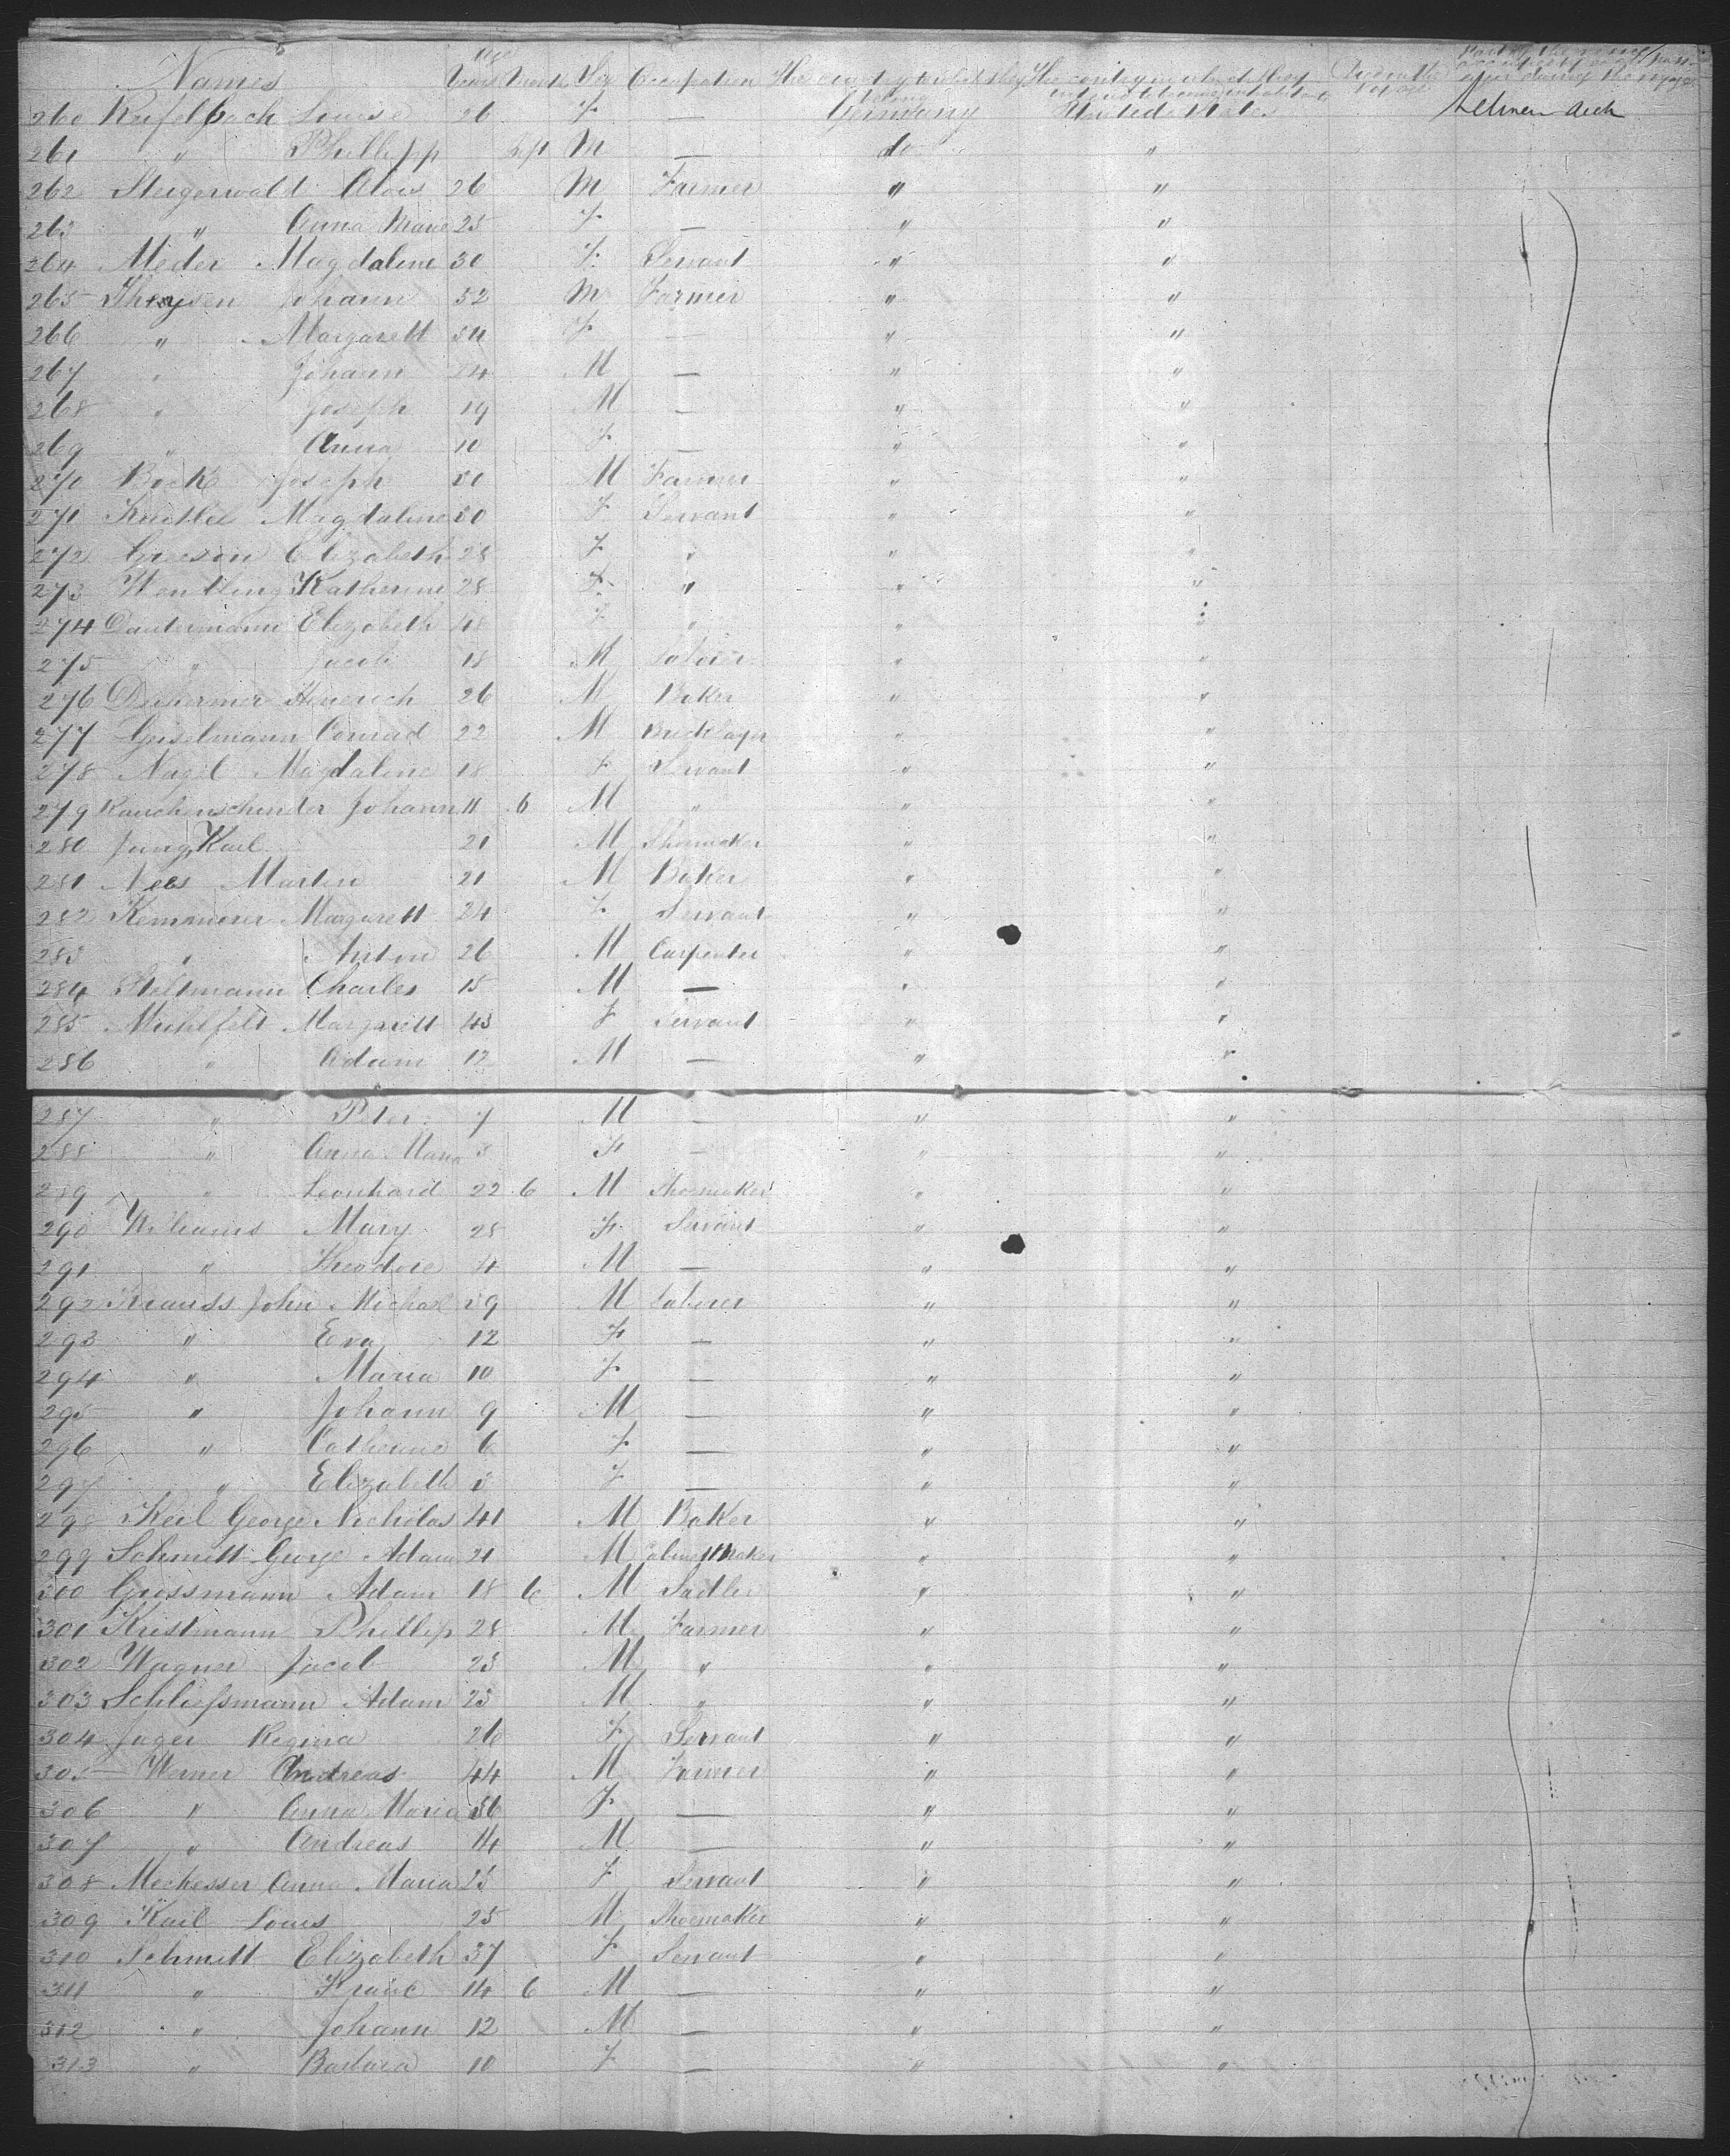 Names Age Years Months Sex Occupation The country to which they belong The country in which they intend to become inhabitants Died on the voyage Part of the vessel occupied by each passenger during the voyage
260 Louise 26 F — Germany United States
261 " Phillipp M — do "
262 Steigerwald Alois 26 M Farmer " "
263 " Anna Marie 25 F — " "
264 Meder Magdalene 30 F Servant " "
265 Johann 52 M Farmer " "
266 " Margarett 54 F — " "
267 " Johann 24 M — " "
268 " Joseph 19 M — " "
269 " Anna 10 F — " "
270 Bock Joseph M Farmer " "
271 Magdalene F Servant " "
272 Elizabeth 28 F " " "
273 Wentling Katherine 28 F " " "
274 Dautermann Elizabeth 48 F " " "
275 " Jacob 18 M Laborer " "
276 Heinrich 26 M Baker " "
277 Geiselmann Conrad 22 M Bricklayer " "
278 Nagel Magdalene 18 F Servant " "
279 Johann 11 6 M " " "
280 Jung Karl 21 M Shoemaker " "
281 Nees Martin 21 M Baker " "
282 Kemmerer Margarett 24 F Servant " "
283 " Anton 26 M Carpenter " "
284 Stoltmann Charles 15 M — " "
285 Muhlfelt Margarett 43 F Servant " "
286 " Adam 12 M — " "
287 " Peter 7 M — " "
288 " Anna Maria F — " "
289 " Leonhard 22 6 M Shoemaker " "
290 Williams Mary 28 F Servant " "
291 " Theodore 4 M — " "
292 Krauss John Michael 39 M Laborer " "
293 " Eva 12 F — " "
294 " Maria 10 F — " "
295 " Johann 9 M — " "
296 " Catherine 6 F — " "
297 " Elizabeth F — " "
298 Keil George Nicholas 41 M Baker " "
299 Schmitt George Adam 21 M Cabinettmaker " "
300 Grossmann Adam 18 6 M Sattler " "
301 Kristmann Phillip 28 M Farmer " "
302 Wagner Jacob 23 M " " "
303 Schließmann Adam 23 M " " "
304 Jager Regina 26 F Servant " "
305 Werner Andreas 44 M Farmer " "
306 " Anna Maria 36 F — " "
307 " Andreas 14 M — " "
308 Meckesser Anna Maria 23 F Servant " "
309 Kail Louis 25 M Shoemaker " "
310 Schmitt Elizabeth 37 F Servant " "
311 " 14 6 M — " "
312 " Johann 12 M — " "
313 " Barbara 10 F — " "